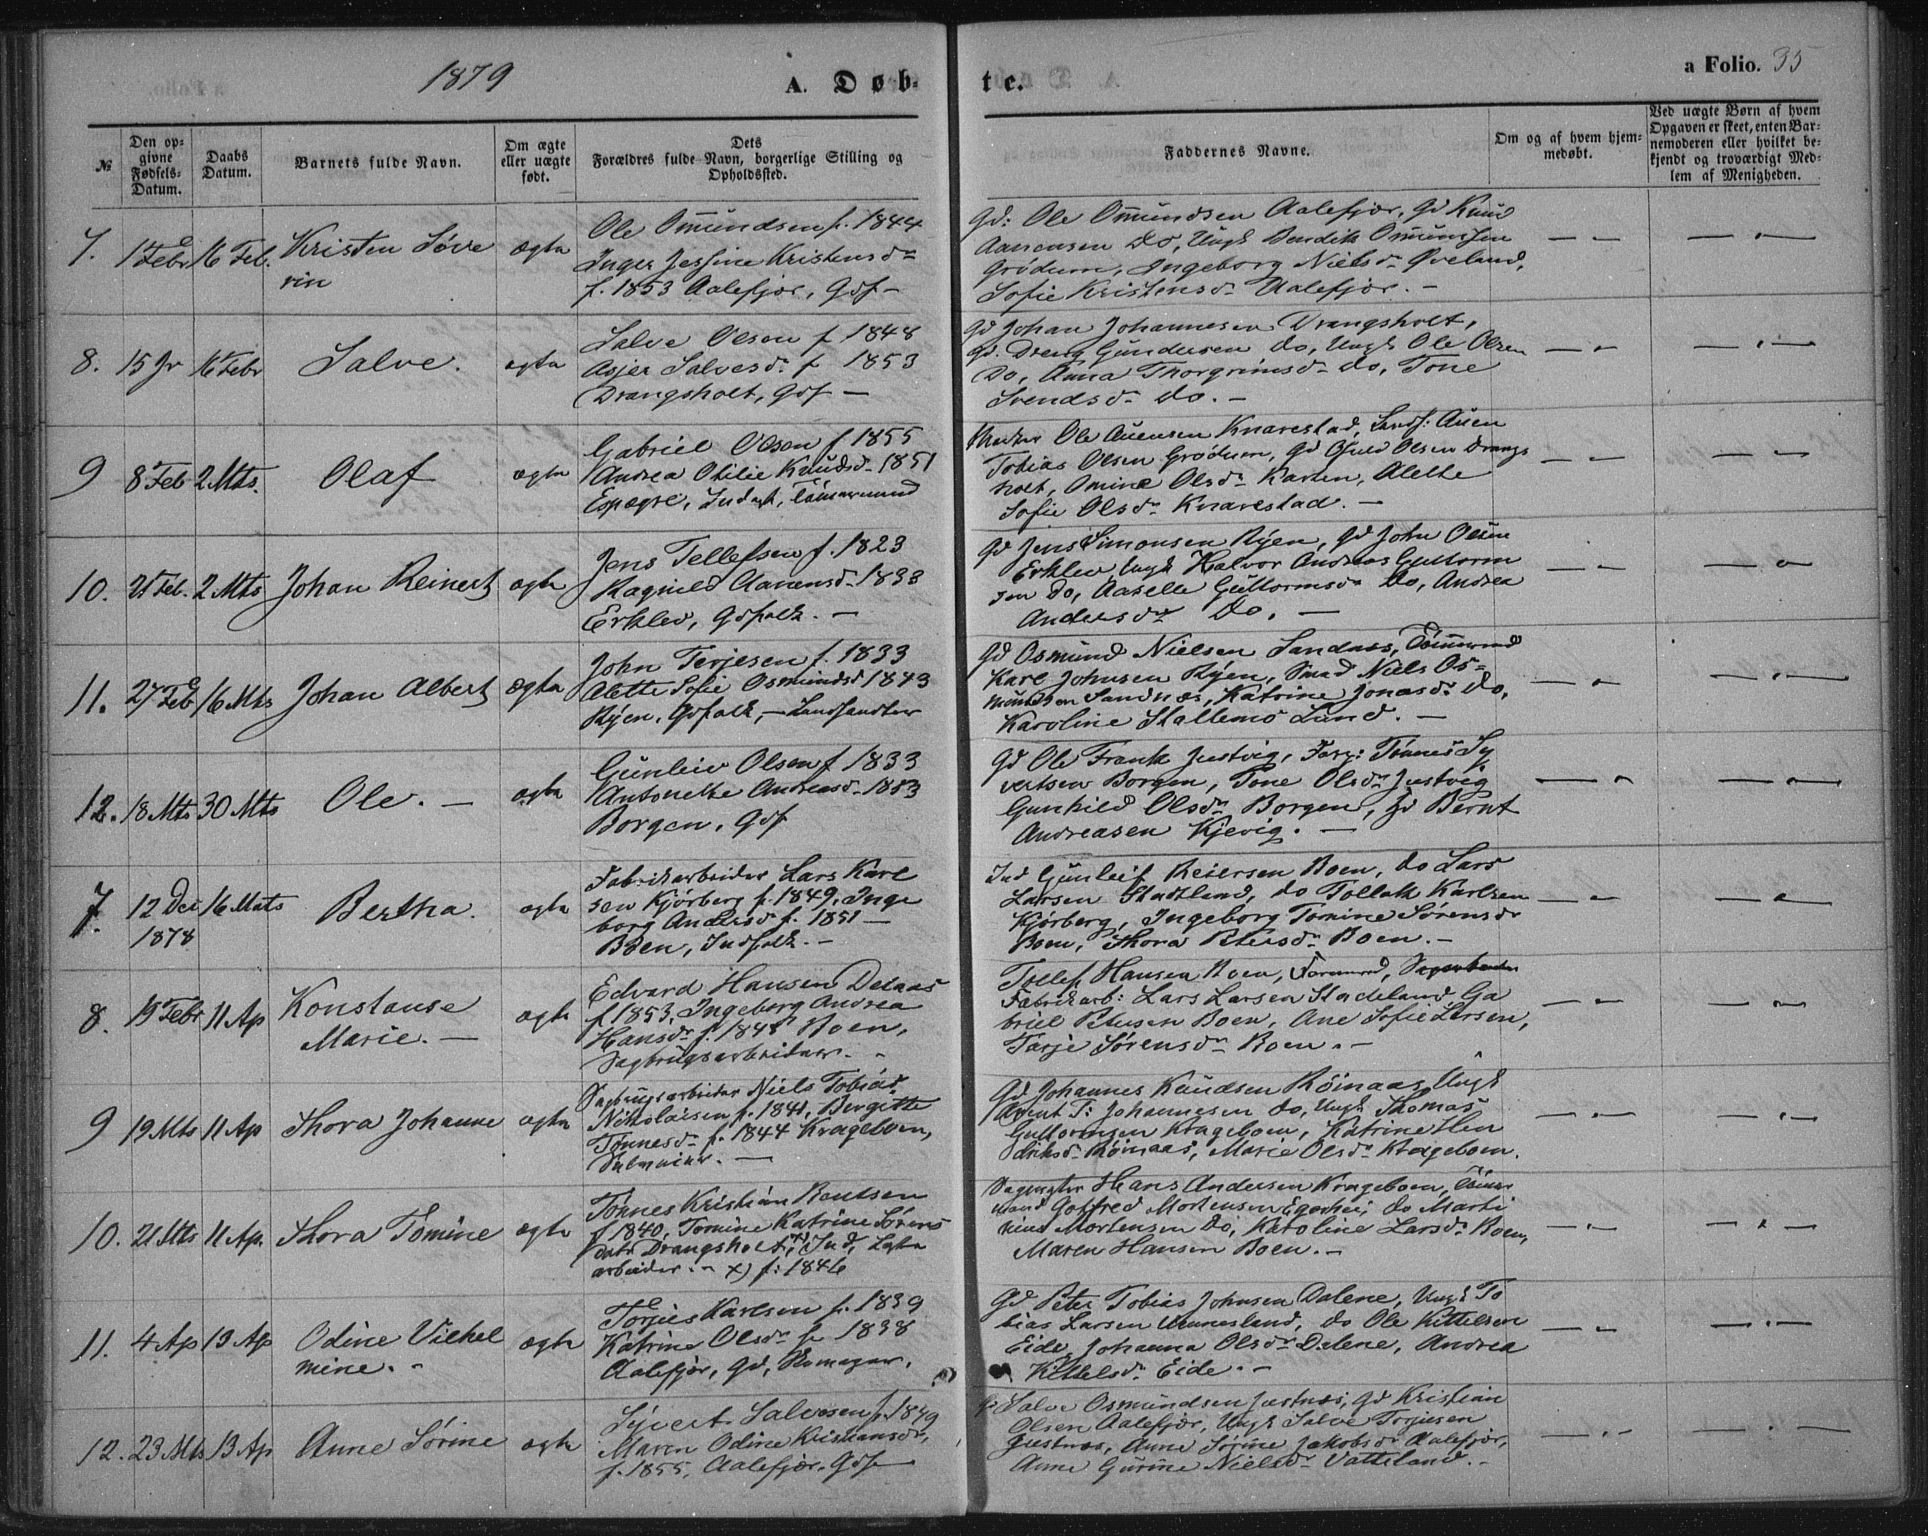 1879
A. Døb-
te.
a Folio. 35
№
Den op-
givne
Fødsels-
Datum.
Daabs
Datum.
Barnets fulde Navn.
Om ægte
eller uægte
født.
Dets
Forældres fulde Navn, borgerlige Stilling og
Opholdssted.
Faddernes Navne.
Om og af hvem hjem-
medøbt.
Ved uægte Børn af hvem
Opgaven er skeet, enten Bar-
nemoderen eller hvilket be-
kjendt og troværdigt Med-
lem af Menigheden.
7. 1 Febr 16 Feb. Kristen Søve
rin
ægte
Ole Omundsen f. 1844
Inger Jessine Kristensdr
f. 1853 Aalefjær, Gdf –
Gd: Ole Omundsen Aalefjær, Gd Knud
Aanensen Do, Ungk Bendik Omundsen
Grødum, Ingeborg Nielsdr Øveland,
Sofie Kristensdr Aalefjær. –
8. 15 Jr 16 Febr Salve.
ægte
Salve Olsen f 1848
Asjer Salvesdr f 1853
Drangsholt, Gdf –
Gd Johan Johannesen Drangsholt,
Gd. Dreng Gundersen do, Ungk Ole Olsen
Do, Anna Thorgrimsdr do, Tone
Svendsdr do. –
9 8 Feb 2 Mts. Olaf
ægte
Gabriel Olsen f 1855
Andrea Otilie Knudsd. 1851
Espegre, Inderst, Tømmermand
Ole Auensen Knarestad, Landh. Auen
Tobias Olsen Grødum, Gd Ojuld Olsen Drangs
holt, Omine Olsdr Karten, Alette
Sofie Olsdr Knarestad. –
10. 21 Feb. 2 Mts Johan Reinert
ægte
Jens Tellefsen f. 1823
Ragnild Aanensd. 1838
Erklev, Gdfolk. –
Gd Jens Simonsen Ryen, Gd John Olsen
Erklev Ungk Halvor Andreas Guttorm
sen Do, Aaselle Guttormsdr Do, Andrea
Andersdr Do. –
11. 27 Feb 16 Mts Johan Albert
ægte
John Terjesen f. 1833
Alette Sofie Osmundsd 1843
Ryen, Gdfolk, – Landhandler
Gd Osmund Nielsen Sandnes, Tømmermd
Karl Johnsen Ryen, Smed Niels Os=
mundsen Sandnæs, Katrine Jonasdr Do,
Karoline Stallemo Lund. –
12. 18 Mts 30 Mts Ole. –
ægte
Gunleiv Olsen f 1833
Antonette Andreasd. 1853
Borgen, Gdf
Gd Ole Frank Justvig, Forp: Tønnes Sy
vertsen Borgen, Tone Olsdr Justvig
Gunhild Olsdr Borgen, Gd Bernt
Andreasen Kjevig. –
7. 12 Dec 16 Mats Bertha.
1878
ægte
Fabrikarbeider Lars Karl
sen Kjørberg f. 1849, Inge
borg Andersd f. 1851 –
Boen, Indfolk. –
Ind Gunleif Reiersen Boen, do Lars
Larsen Stadtland, do Tollak Karlsen
Kjørberg, Ingeborg Tomine Sørensdr
Boen, Thora Petersdr Boen. –
8. 19 Febr 11 Ap Konstanse
Marie. –
ægte
Edvard Hansen Delaas
f 1853, Ingeborg Andrea
Hansdr f. 1848 Boen,
Sagbrugsarbeider. –
Tollef Hansen Boen, Formand,
Fabrikarb: Lars Larsen Stadeland, Ga
briel Petersen Boen, Ane Sofie Larsen,
Tarje Sørensdr Boen. –
9 19 Mts 11 Ap Thora Johanne
ægte
Sagbrugsarbeider Niels Tobias
Nikolaisen f. 1841, Bergitte
Tønnesdr f. 1844 Krageboen,
Gd Johannes Knudsen Røinaas, Ungk
Arent T: Johannesen do, Ungk Thomas
Guttormsen Krageboen, Katrine Hen
driksdr Røinaas, Marie Olsdr Krageboen.
10. 21 Mts 11 Ap. Thora Tomine
ægte
Tønnes Kristian Bentsen
f 1840, Tomine Katrine Sørens
datr Drangsholt, x) Ind,
arbeider. – x) f: 1846
Sagmester Hans Andersen Krageboen, Tømmer
mand Gotfred Mortensen Egenhei, do Marti
nius Mortensen Do, Karoline Larsdr Boen,
Maren Hansen Boen. –
11. 4 Ap 13 Ap Odine Vilhel
mine. –
ægte
Torjus Karlsen f. 1839
Katrine Olsdr f 1838
Aalefjær, Gd,
Gd Peter Tobias Johnsen Dalene, Ungk To
bias Larsen Unnesland, do Ole Kittelsen
Eide, Johanna Olsdr Dalene, Andrea
Kittelsdr Eide. –
12. 23 Mts 13 Ap Anne Sørine
ægte
Syvert Salvesen f. 1849
Maren Odine Kristiansdr,
f. 1855, Aalefjær, Gdf –
Gd Salve Osmundsen Justnæs, Gd Kristian
Olsen Aalefjær, Ungk Salve Torjusen
Justnæs, Anne Sørine Jakobsdr Aalefjær,
Anne Gurine Nielsdr Vatteland. –